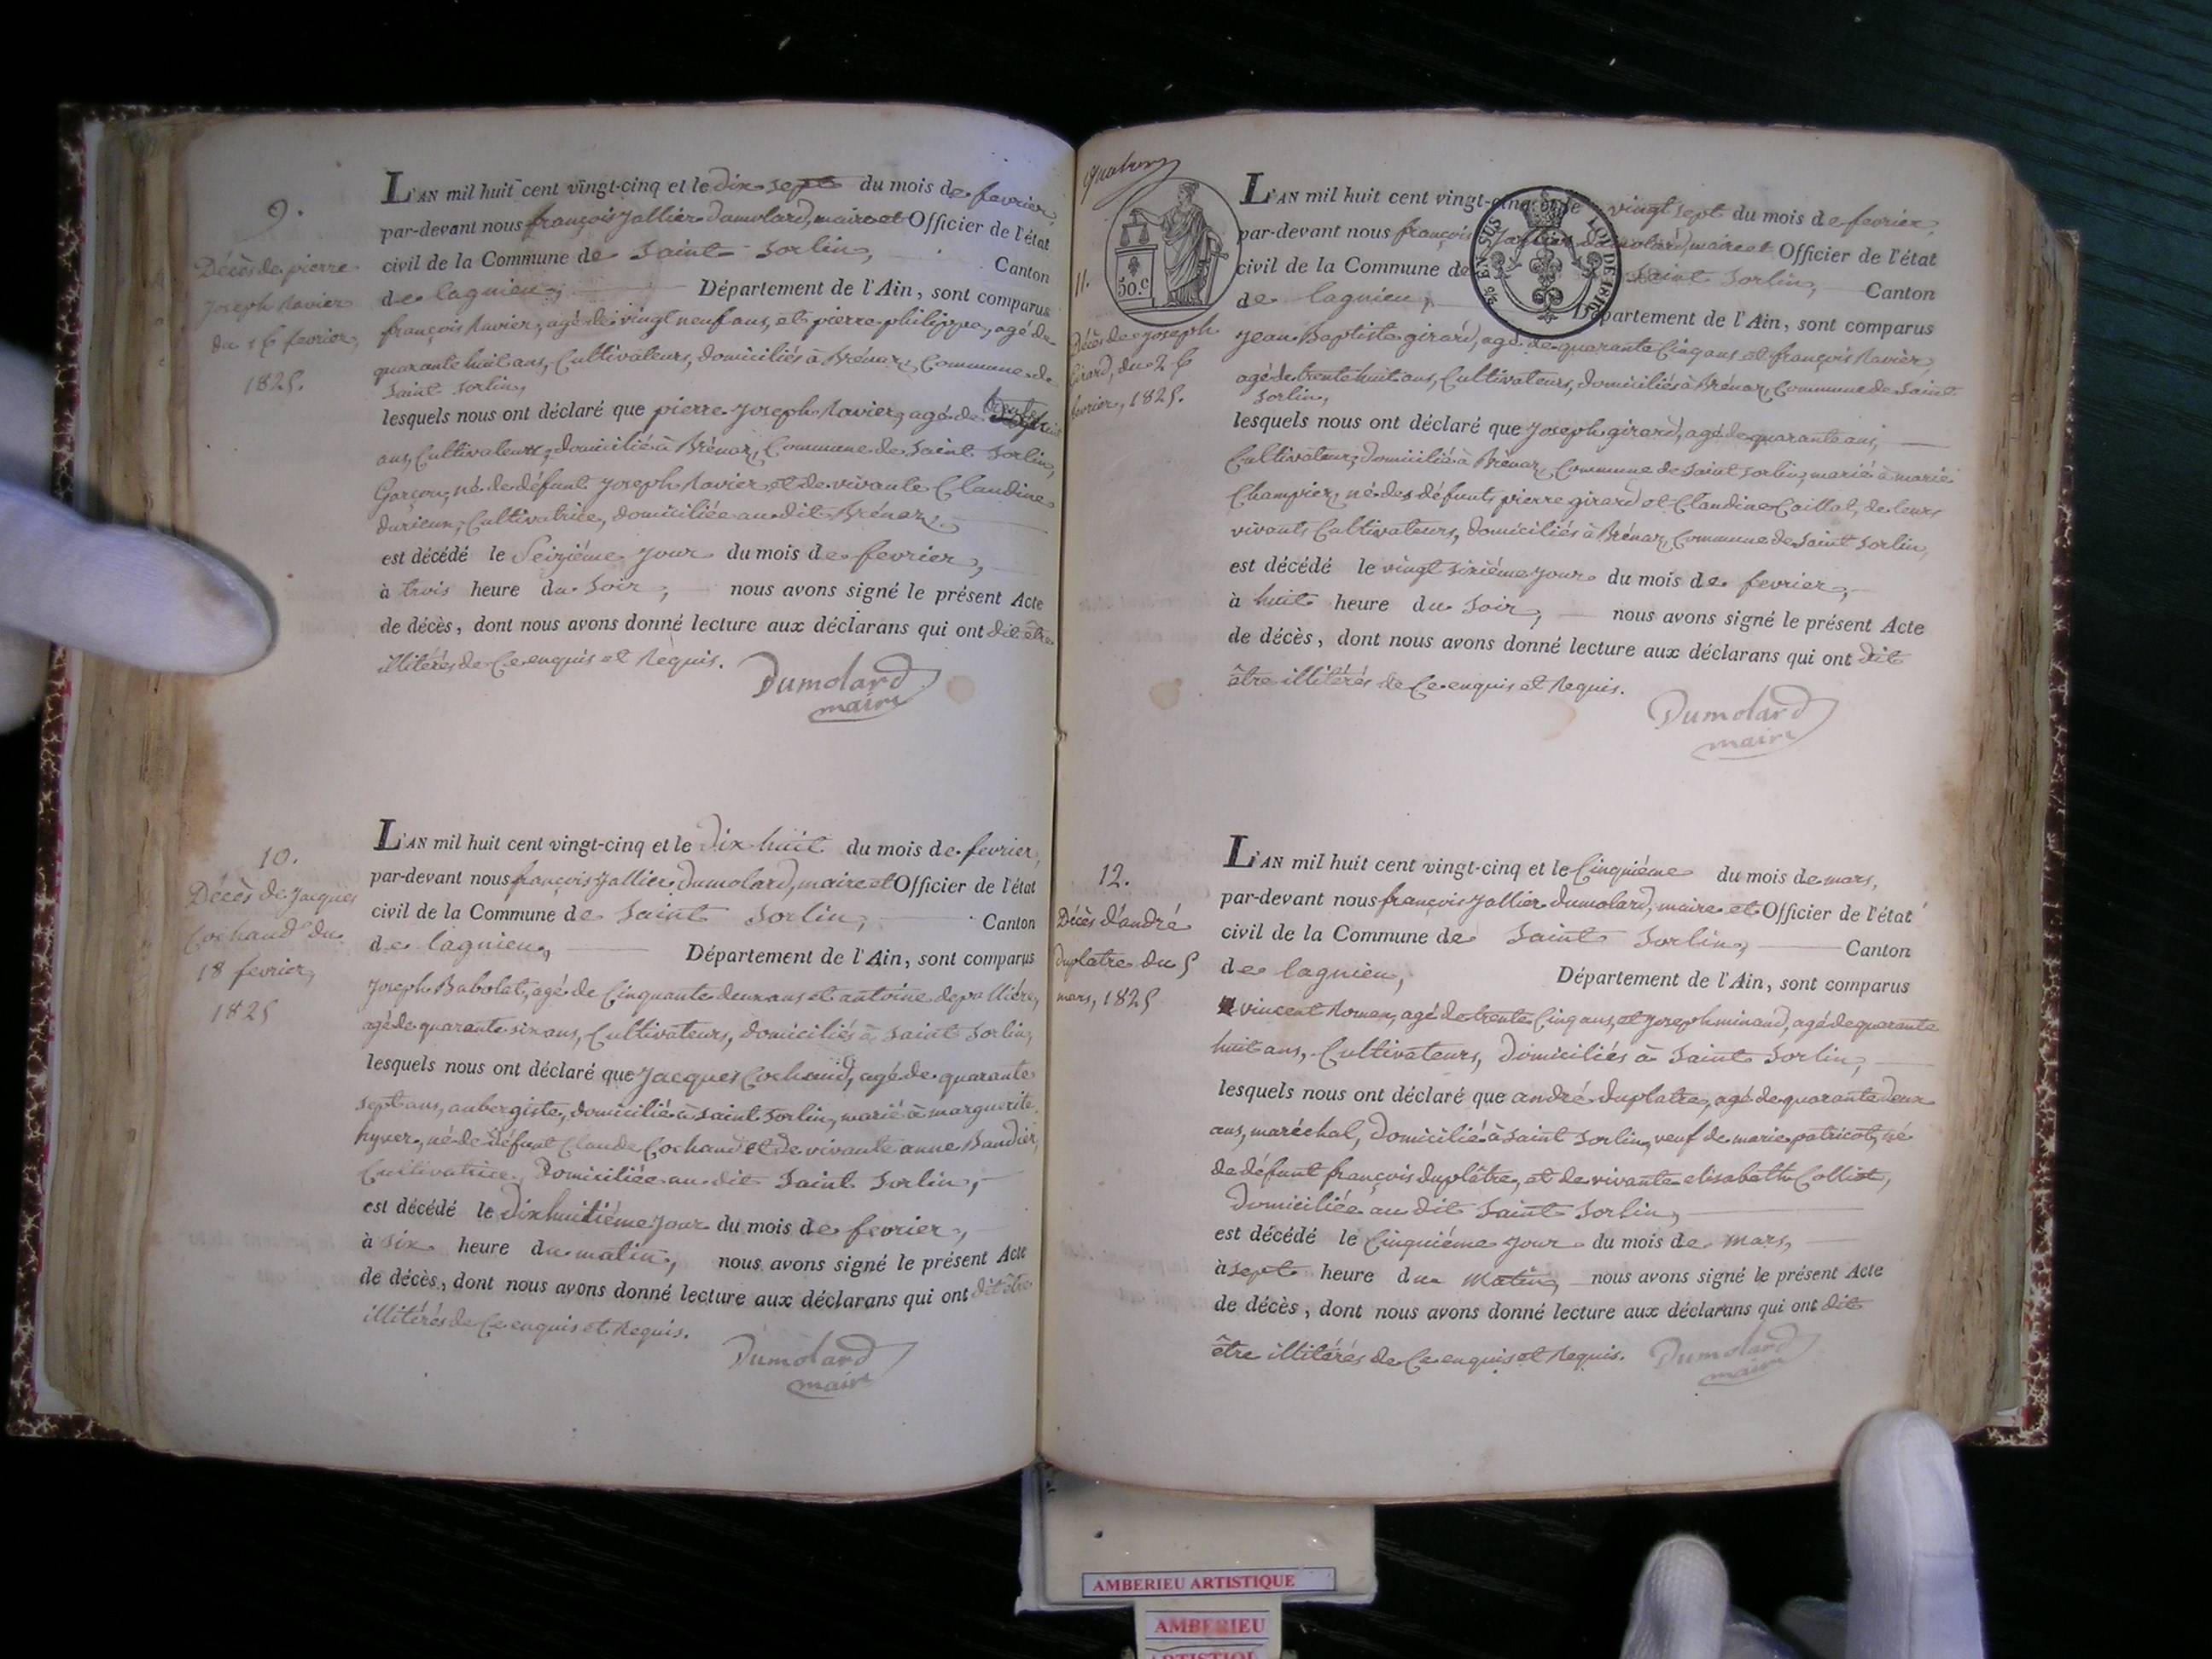 9.
Décès de pierre
Joseph Ravier
du 16 fevrier,
1825.
L'AN mil huit cent vingt-cinq et le dix sept du mois de fevrier,
par-devant nous françois Jallier Dumolard, maire et Officier de l'état
civil de la Commune de Saint Sorlin, Canton
de lagnieu, Département de l'Ain, sont comparus
françois Ravier, agé de vingt neuf ans, et pierre philippe, agé de
quarante huit ans, Cultivateurs, domiciliés à Brénaz, Commune de
Saint Sorlin,
lesquels nous ont déclaré que pierre Joseph Ravier, agé de trente
ans, Cultivateur, domicilié à Brénaz, Commune de Saint Sorlin,
Garçon, né de défunt Joseph Ravier et de vivante Claudine
durieux, Cultivatrice, domiciliée au dit Brénaz,
est décédé le Seizième jour du mois de fevrier,
à trois heure du Soir, nous avons signé le présent Acte
de décès, dont nous avons donné lecture aux déclarans qui ont dit être
illitérés de Ce enquis et Requis.
Dumolard
maire
10.
Décès de Jacques
Cochand du
18 fevrier,
1825
L'AN mil huit cent vingt-cinq et le dix huit du mois de fevrier,
par-devant nous françois Jallier Dumolard, maire et Officier de l'état
civil de la Commune de Saint Sorlin, Canton
de lagnieu, Département de l'Ain, sont comparus
Joseph Babolat, agé de Cinquante deux ans et antoine depallière,
agé de quarante six ans, Cultivateurs, domiciliés à Saint Sorlin,
lesquels nous ont déclaré que Jacques Cochand, agé de quarante
sept ans, aubergiste, domicilié à Saint Sorlin, marié à marguerite
hyver, né de défunt Claude Cochand et de vivante anne Bandier,
Cultivatrice, Domiciliée au dit Saint Sorlin,
est décédé le Dixhuitième jour du mois de fevrier,
à six heure du matin, nous avons signé le présent Acte
de décès, dont nous avons donné lecture aux déclarans qui ont dit être
illitérés de Ce enquis et Requis.
Dumolard
maire
50.c
EN SUS
LOI DE 1816
11.
Décès de Joseph
Girard, du 26
fevrier, 1825.
L'AN mil huit cent vingt-cinq et le vingt sept du mois de fevrier,
par-devant nous françois Jallier Dumolard, maire et Officier de l'état
civil de la Commune de Saint Sorlin, Canton
de lagnieu, Département de l'Ain, sont comparus
Jean Baptiste girard, agé de quarante Cinq ans et françois Ravier,
agé de trente huit ans, Cultivateurs, domiciliés à Brénaz, Commune de Saint
Sorlin,
lesquels nous ont déclaré que Joseph girard, agé de quarante ans,
Cultivateur, domicilié à Brénaz, Commune de Saint Sorlin, marié à marie
Champier, né des défunts pierre girard et Claudine Caillat, de leurs
vivants Cultivateurs, domiciliés à Brénaz, Commune de Saint Sorlin,
est décédé le vingt sixième jour du mois de fevrier,
à huit heure du Soir, nous avons signé le présent Acte
de décès, dont nous avons donné lecture aux déclarans qui ont dit
être illitérés de Ce enquis et Requis.
Dumolard
maire
12.
Décès d'andré
duplatre du 5
mars, 1825
L'AN mil huit cent vingt-cinq et le Cinquième du mois de mars,
par-devant nous françois Jallier Dumolard, maire et Officier de l'état
civil de la Commune de Saint Sorlin, Canton
de lagnieu, Département de l'Ain, sont comparus
vincent Roman, agé de trente Cinq ans, et Joseph minand, agé de quarante
huit ans, Cultivateurs, Domiciliés à Saint Sorlin,
lesquels nous ont déclaré que andré duplatre, agé de quarante deux
ans, maréchal, Domicilié à Saint Sorlin, veuf de marie patricot, né
de défunt françois duplâtre, et de vivante elisabeth Colliot,
Domiciliée au dit Saint Sorlin,
est décédé le Cinquième jour du mois de mars,
à sept heure du Matin, nous avons signé le présent Acte
de décès, dont nous avons donné lecture aux déclarans qui ont dit
être illitérés de Ce enquis et Requis. Dumolard
maire
AMBERIEU ARTISTIQUE
AMBERIEU
ARTISTIQUE